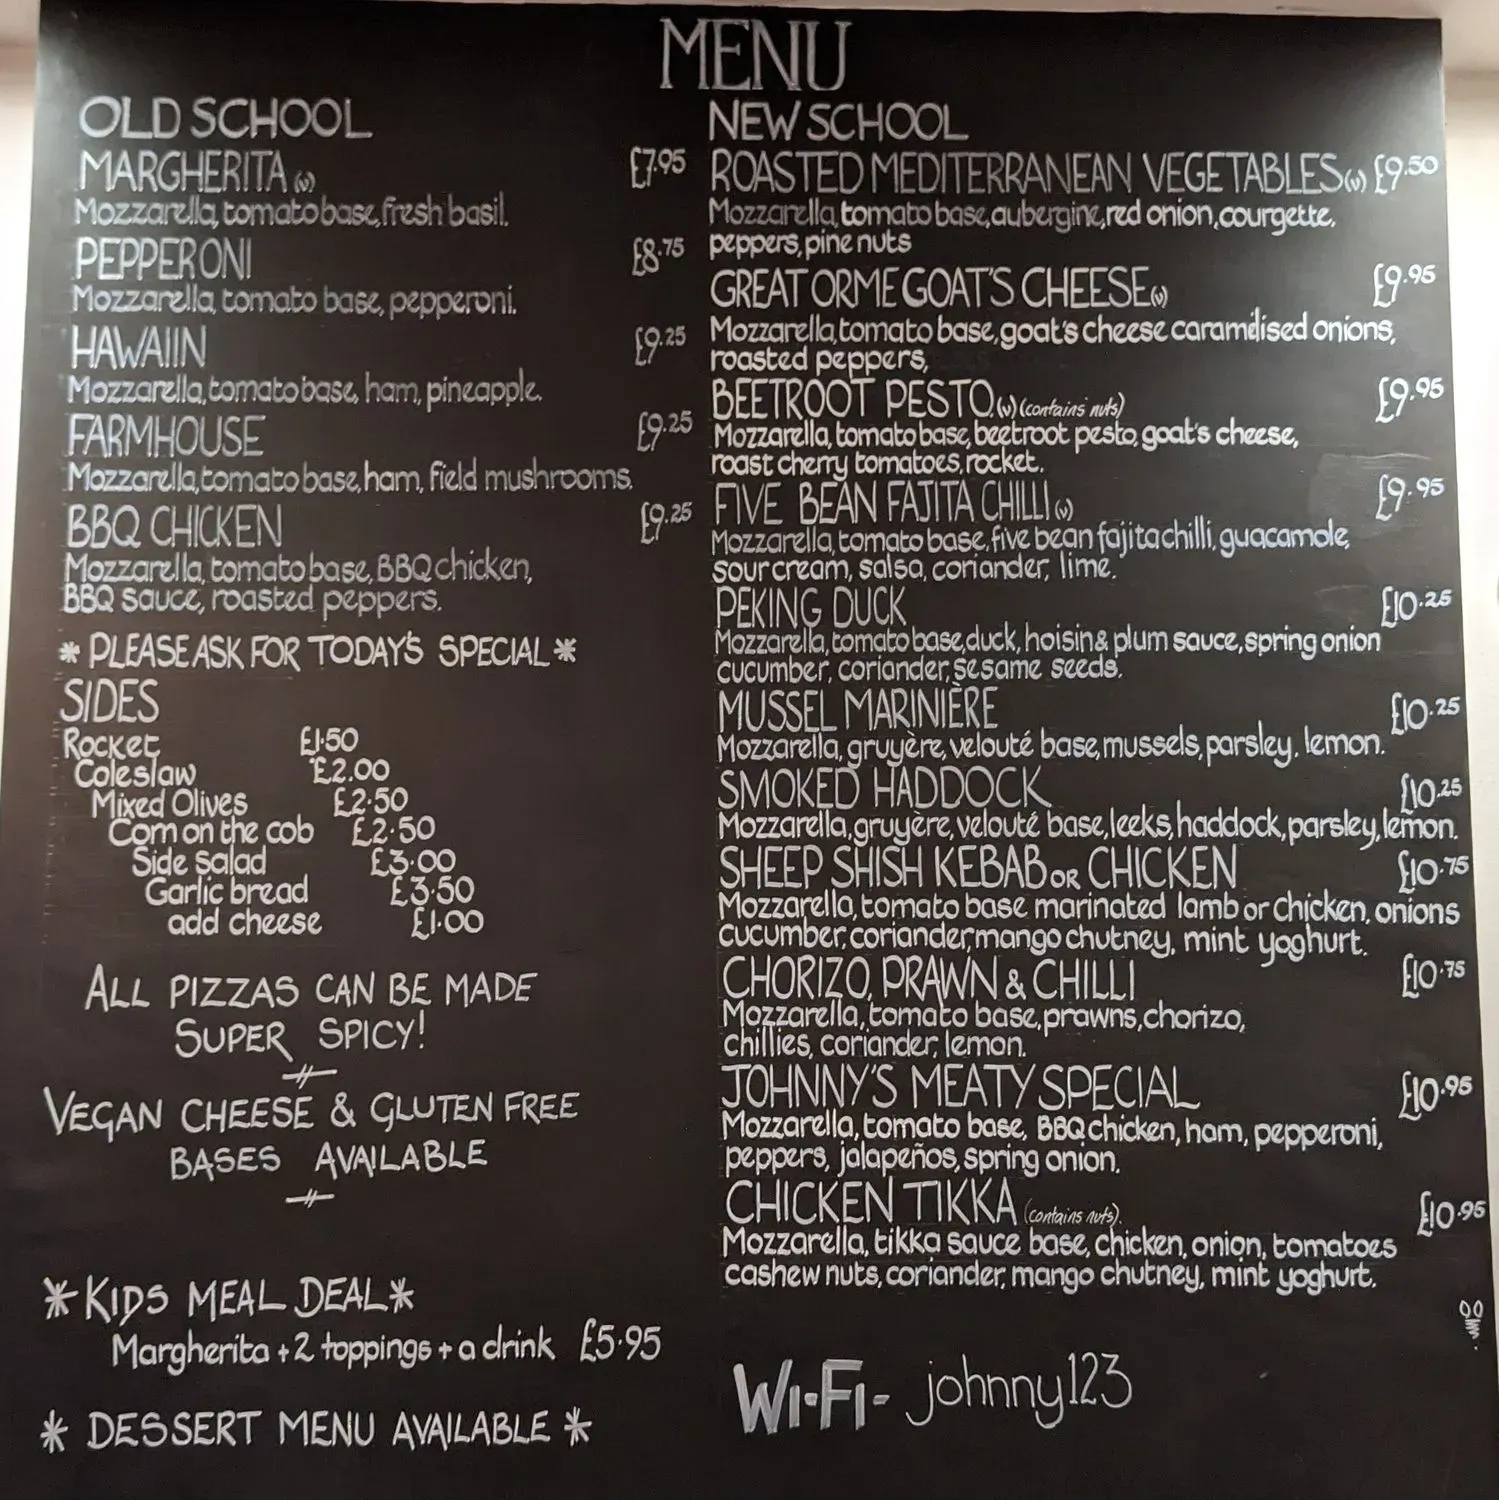 MENU
OLD SCHOOL
MARGHERITA (v) £7.95
Mozzarella, tomato base, fresh basil.
PEPPERONI £8.75
Mozzarella, tomato base, pepperoni.
HAWAIIN £9.25
Mozzarella, tomato base, ham, pineapple.
FARMHOUSE £9.25
Mozzarella, tomato base, ham, field mushrooms.
BBQ CHICKEN £9.25
Mozzarella, tomato base, BBQ chicken,
BBQ sauce, roasted peppers.
* PLEASE ASK FOR TODAY'S SPECIAL *
SIDES
Rocket £1.50
Coleslaw £2.00
Mixed Olives £2.50
Corn on the cob £2.50
Side salad £3.00
Garlic bread £3.50
add cheese £1.00
ALL PIZZAS CAN BE MADE
SUPER SPICY!
VEGAN CHEESE & GLUTEN FREE
BASES AVAILABLE
*KIDS MEAL DEAL*
Margherita + 2 toppings + a drink £5.95
* DESSERT MENU AVAILABLE *
NEW SCHOOL
ROASTED MEDITERRANEAN VEGETABLES (v) £9.50
Mozzarella, tomato base, aubergine, red onion, courgette,
peppers, pine nuts
GREAT ORME GOAT'S CHEESE (v) £9.95
Mozzarella, tomato base, goat's cheese caramelised onions,
roasted peppers,
BEETROOT PESTO (v) (contains nuts) £9.95
Mozzarella, tomato base, beetroot pesto, goat's cheese,
roast cherry tomatoes, rocket.
FIVE BEAN FAJITA CHILLI (v) £9.95
Mozzarella, tomato base, five bean fajita chilli, guacamole,
sour cream, salsa, coriander, lime.
PEKING DUCK £10.25
Mozzarella, tomato base, duck, hoisin & plum sauce, spring onion
cucumber, coriander, sesame seeds.
MUSSEL MARINIÈRE £10.25
Mozzarella, gruyère, velouté base, mussels, parsley. lemon.
SMOKED HADDOCK £10.25
Mozzarella, gruyère, velouté base, leeks, haddock, parsley, lemon.
SHEEP SHISH KEBAB OR CHICKEN £10.75
Mozzarella, tomato base marinated lamb or chicken, onions
cucumber, coriander, mango chutney, mint yoghurt.
CHORIZO, PRAWN & CHILLI £10.75
Mozzarella, tomato base, prawns, chorizo,
chillies, coriander, lemon.
JOHNNY'S MEATY SPECIAL £10.95
Mozzarella, tomato base, BBQ chicken, ham, pepperoni,
peppers, jalapeños, spring onion.
CHICKEN TIKKA (contains nuts) £10.95
Mozzarella, tikka sauce base, chicken, onion, tomatoes
cashew nuts, coriander, mango chutney, mint yoghurt.
WI-FI - johnny123